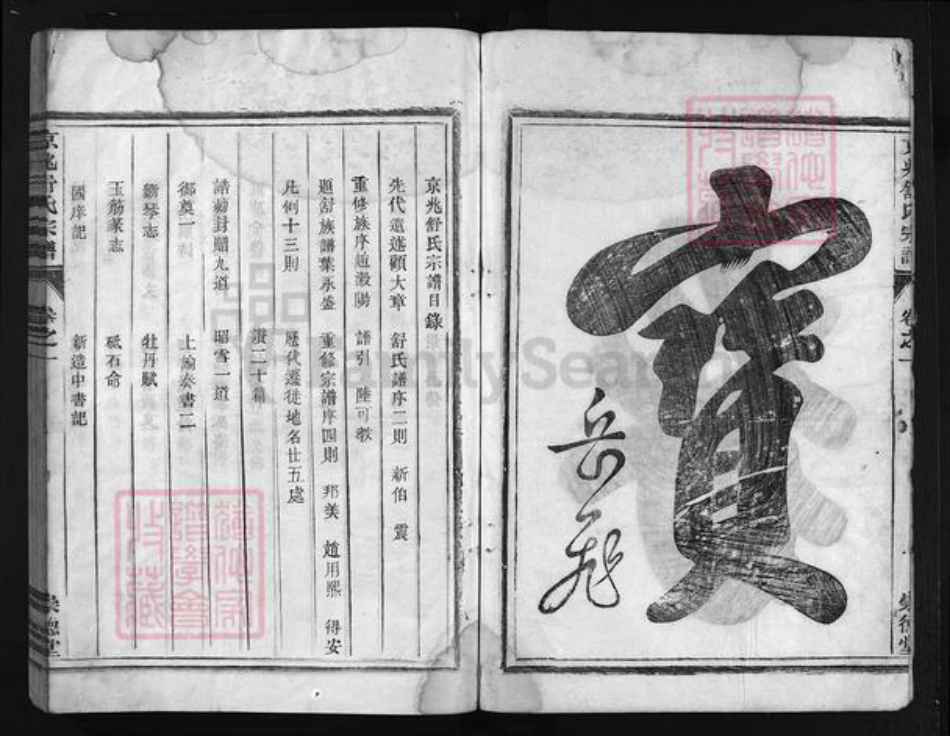 寶
岳飛
京兆舒氏宗譜
卷之一
崇德堂
京兆舒氏宗譜目錄
先代遺迹顧大章 舒氏譜序二則 新伯 震
重修族序趙㵾陽 譜引 陸可教
題舒族譜葉永盛 重修宗譜序四則 邦美 趙用熙 得安
凡例十三則 歷代遷徙地名廿五處
讚二十篇
誥勅封贈九道 昭雪一道
御奠一 上諭奏書二
斲琴志 牡丹賦
玉筋篆志 砥石命
國庠記 新造中書記
京兆舒氏宗譜
卷之一
崇德堂
FamilySearch